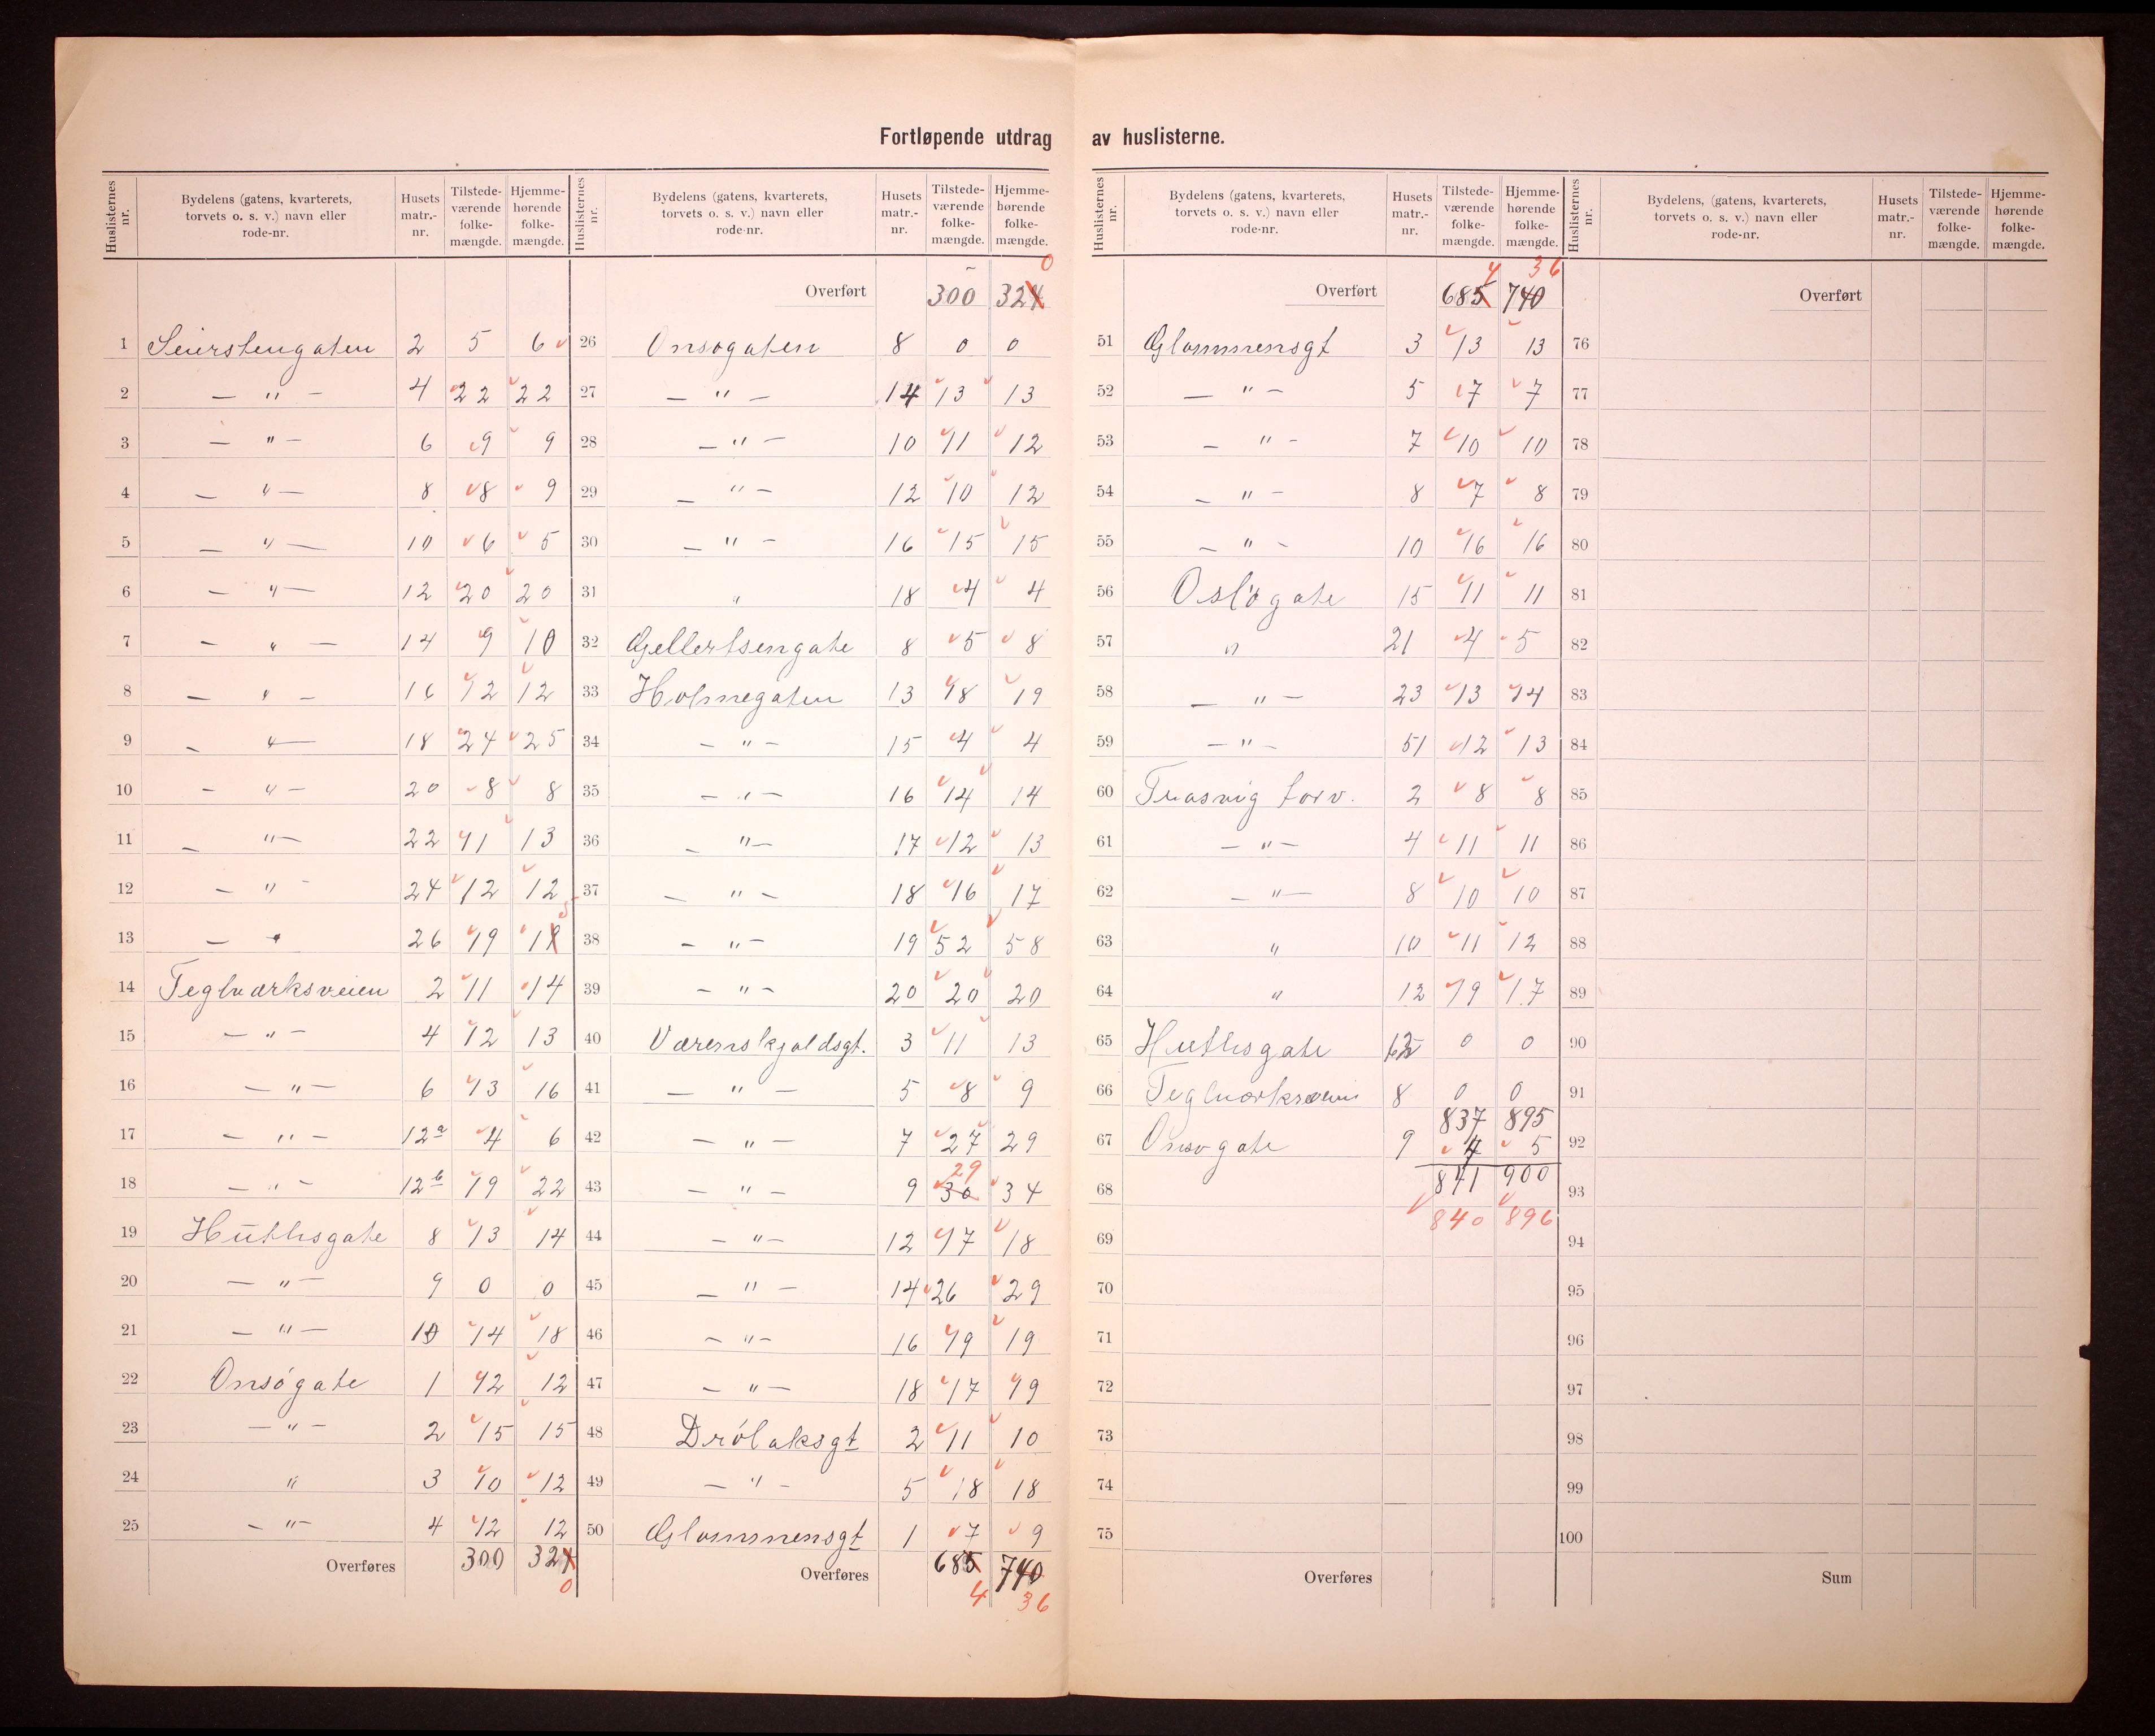 Fortløpende utdrag av huslisterne.
Huslisternes nr. | Bydelens (gatens, kvarterets, torvets o. s. v.) navn eller rode-nr. | Husets matr.-nr. | Tilstede-værende folke-mængde. | Hjemme-hørende folke-mængde.
1 Seierstengaten 2 5 6
2 — " — 4 22 22
3 — " — 6 9 9
4 — " — 8 8 9
5 — " — 10 6 5
6 — " — 12 20 20
7 — " — 14 9 10
8 — " — 16 12 12
9 — " — 18 24 25
10 — " — 20 8 8
11 — " — 22 11 13
12 — " — 24 12 12
13 — " — 26 19
14 Teglværksveien 2 11 14
15 — " — 4 12 13
16 — " — 6 13 16
17 — " — 12a 4 6
18 — " — 12b 19 22
19 Huthsgate 8 13 14
20 — " — 9 0 0
21 — " — 10 14 18
22 Onsøgate 1 12 12
23 — " — 2 15 15
24 " 3 10 12
25 — " — 4 12 12
Overføres 300 324
0
Huslisternes nr. | Bydelens (gatens, kvarterets, torvets o. s. v.) navn eller rode-nr. | Husets matr.-nr. | Tilstede-værende folke-mængde. | Hjemme-hørende folke-mængde.
0
Overført 300 324
26 Onsøgaten 8 0 0
27 — " — 14 13 13
28 — " — 10 11 12
29 — " — 12 10 12
30 — " — 16 15 15
31 " 18 4 4
32 Gjellertsengate 8 5 8
33 Holmegaten 13 18 19
34 — " — 15 4 4
35 — " — 16 14 14
36 — " — 17 12 13
37 — " — 18 16 17
38 — " — 19 52 58
39 — " — 20 20 20
40 Værenskjoldsgt. 3 11 13
41 — " — 5 8 9
42 — " — 7 27 29
29
43 — " — 9 30 34
44 — " — 12 17 18
45 — " — 14 26 29
46 — " — 16 19 19
47 — " — 18 17 19
48 Drøbaksgt 2 11 10
49 — " — 5 18 18
50 Glommensgt 1 7 9
Overføres 685 740
4 36
Huslisternes nr. | Bydelens (gatens, kvarterets, torvets o. s. v.) navn eller rode-nr. | Husets matr.-nr. | Tilstede-værende folke-mængde. | Hjemme-hørende folke-mængde.
4 36
Overført 685 740
51 Glommensgt 3 13 13
52 — " — 5 7 7
53 — " — 7 10 10
54 — " — 8 7 8
55 — " — 10 16 16
56 Osløgate 15 11 11
57 " 21 4 5
58 — " — 23 13 14
59 — " — 51 12 13
60 torv. 2 8 8
61 — " — 4 11 11
62 — " — 8 10 10
63 " 10 11 12
64 " 12 19 17
65 Huthsgate 0 0
66 Teglværksveien 8 0 0
837 895
67 Onsøgate 9 4 5
68 841 900
840 896
69
70
71
72
73
74
75
Overføres
Huslisternes nr. | Bydelens, (gatens, kvarterets, torvets o. s. v.) navn eller rode-nr. | Husets matr.-nr. | Tilstede-værende folke-mængde. | Hjemme-hørende folke-mængde.
Overført
76
77
78
79
80
81
82
83
84
85
86
87
88
89
90
91
92
93
94
95
96
97
98
99
100
Sum